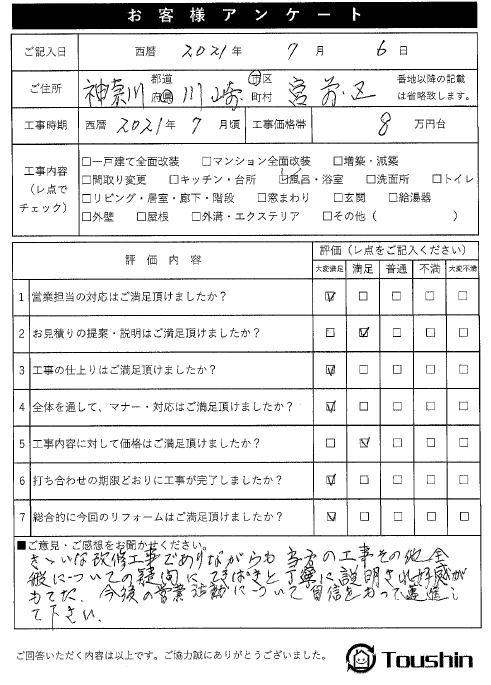 お客様アンケート
ご記入日 西暦 2021年 7月 6日
ご住所 神奈川 都道府県 川崎 市区町村 宮前区 番地以降の記載は省略致します。
工事時期 西暦 2021年 7月頃 工事価格帯 8万円台
工事内容（レ点でチェック）
□一戸建て全面改装 □マンション全面改装 □増築・減築
□間取り変更 □キッチン・台所 ☑風呂・浴室 □洗面所 □トイレ
□リビング・居室・廊下・階段 □窓まわり □玄関 □給湯器
□外壁 □屋根 □外溝・エクステリア □その他（ ）
評価内容 評価（レ点をご記入ください）
大変満足 満足 普通 不満 大変不満
1 営業担当の対応はご満足頂けましたか？ ☑ □ □ □ □
2 お見積りの提案・説明はご満足頂けましたか？ □ ☑ □ □ □
3 工事の仕上りはご満足頂けましたか？ ☑ □ □ □ □
4 全体を通して、マナー・対応はご満足頂けましたか？ ☑ □ □ □ □
5 工事内容に対して価格はご満足頂けましたか？ □ ☑ □ □ □
6 打ち合わせの期限どおりに工事が完了しましたか？ ☑ □ □ □ □
7 総合的に今回のリフォームはご満足頂けましたか？ ☑ □ □ □ □
■ご意見・ご感想をお聞かせください。
改修工事でありながらも 当方の工事その他全
般についての疑問にてきぱきと丁寧に説明され好感が
もてた。今後の営業活動について自信をもって邁進し
て下さい。
ご回答いただく内容は以上です。ご協力誠にありがとうございました。
Toushin